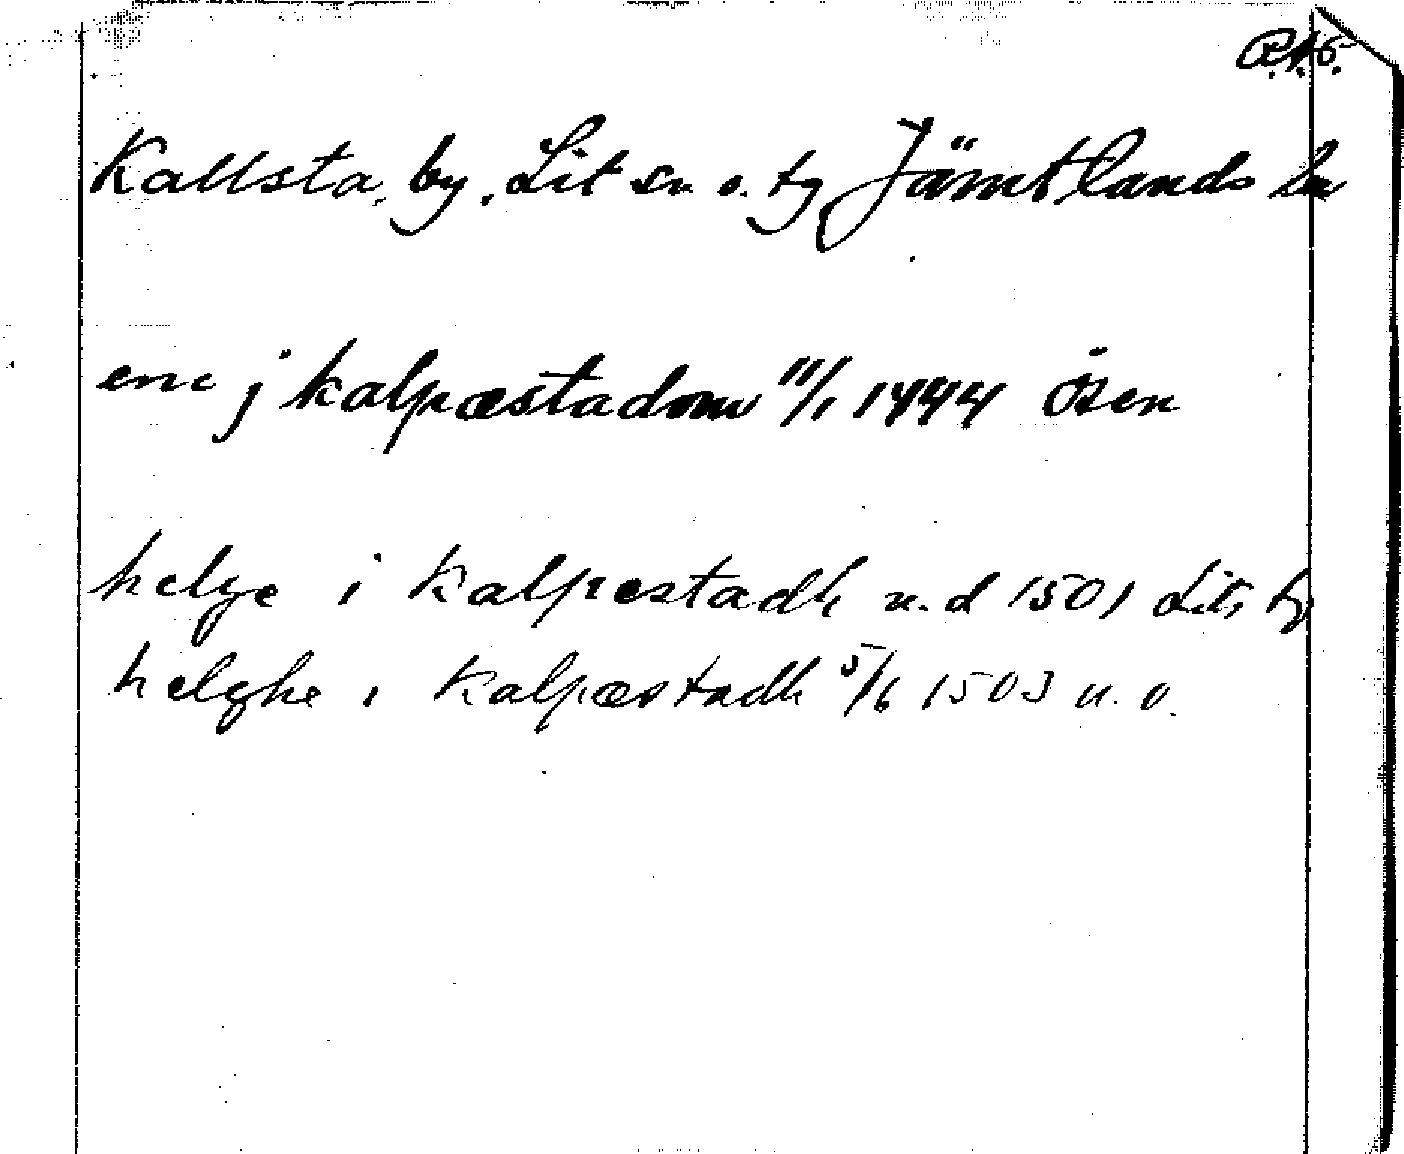 Kallsta, by, Lit sn o. tg Jämtlands ln
ene j kalpæstadom 11/1 1444 Ösen
helge i kalpestadh u.d 1501 Lits tg
helghe i kalpæstadh 5/6 1503 u. o.